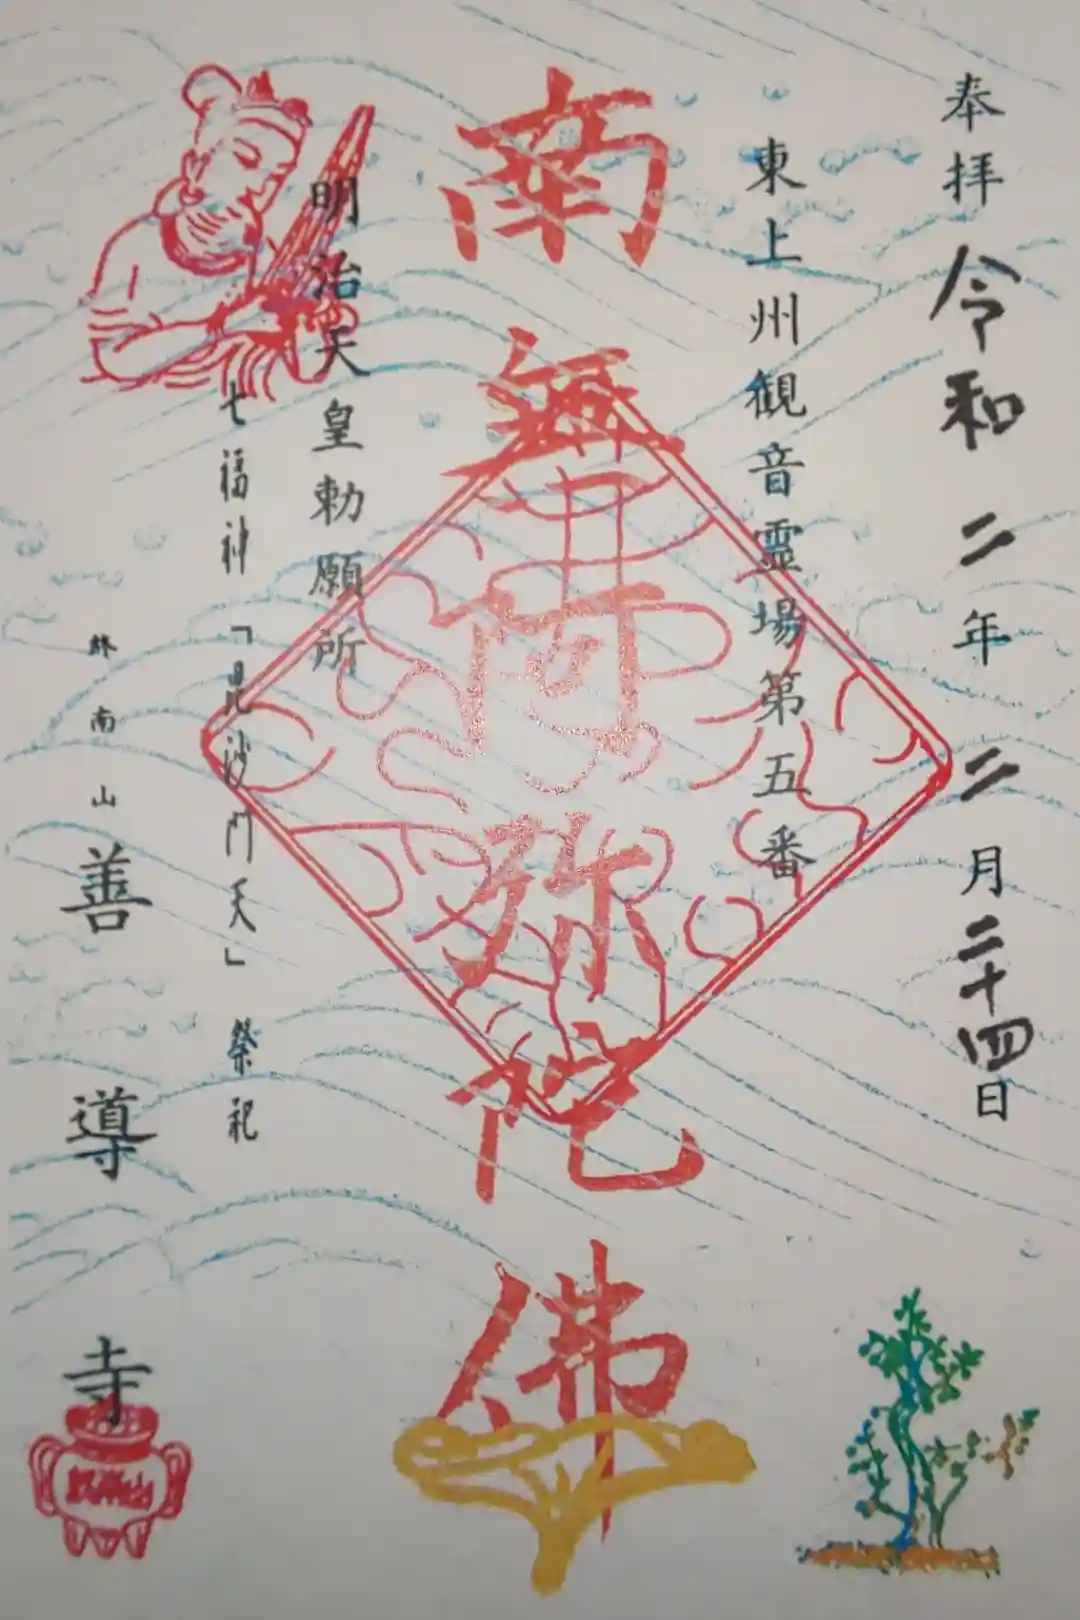 奉拝 令和二年二月二十四日
東上州観音霊場第五番
南無阿弥陀佛
明治天皇勅願所
七福神「毘沙門天」祭祀
南山 善導寺